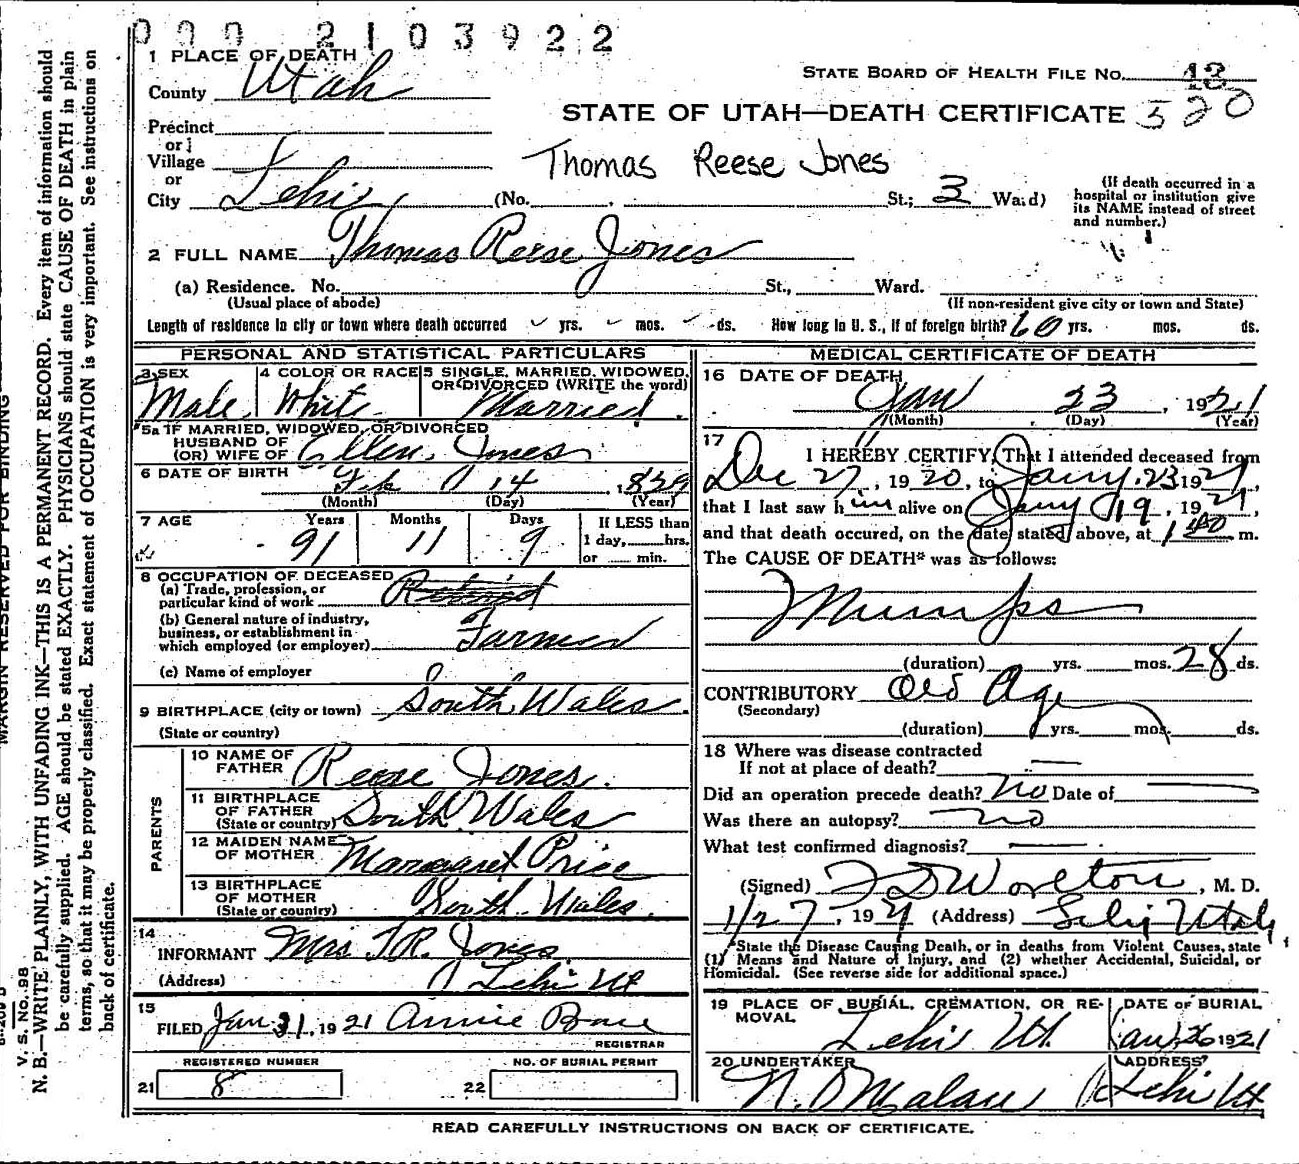 000 2103922
1 PLACE OF DEATH
County Utah
STATE BOARD OF HEALTH FILE No. 12
STATE OF UTAH—DEATH CERTIFICATE 520
Precinct
or
Village
or
City Lehi (No. St.; 3 Ward)
Thomas Reese Jones
(If death occurred in a
hospital or institution give
its NAME instead of street
and number.)
2 FULL NAME Thomas Reese Jones
(a) Residence. No. St., Ward.
(Usual place of abode) (If non-resident give city or town and State)
Length of residence in city or town where death occurred yrs. mos. ds. How long in U. S., if of foreign birth? 60 yrs. mos. ds.
PERSONAL AND STATISTICAL PARTICULARS
3 SEX
Male
4 COLOR OR RACE
White
5 SINGLE, MARRIED, WIDOWED,
OR DIVORCED (WRITE the word)
Married
5a IF MARRIED, WIDOWED, OR DIVORCED
HUSBAND OF
(OR) WIFE OF Ellen Jones
6 DATE OF BIRTH Feb 14, 1829
(Month) (Day) (Year)
7 AGE Years Months Days If LESS than
1 day, hrs.
or min.
91 11 9
8 OCCUPATION OF DECEASED
(a) Trade, profession, or
particular kind of work Retired
(b) General nature of industry,
business, or establishment in
which employed (or employer) Farmer
(c) Name of employer
9 BIRTHPLACE (city or town) South Wales
(State or country)
PARENTS
10 NAME OF
FATHER Reese Jones
11 BIRTHPLACE
OF FATHER
(State or country) South Wales
12 MAIDEN NAME
OF MOTHER Margaret Price
13 BIRTHPLACE
OF MOTHER
(State or country) South Wales
14
INFORMANT Mrs T.R. Jones
(Address) Lehi Ut
15
FILED Jan 31, 1921 Annie
REGISTRAR
REGISTERED NUMBER
21 8
NO. OF BURIAL PERMIT
22
MEDICAL CERTIFICATE OF DEATH
16 DATE OF DEATH
Jan 23, 1921
(Month) (Day) (Year)
17
I HEREBY CERTIFY, That I attended deceased from
Dec 27, 1920, to Jany. 23 1921,
that I last saw him alive on Jany 19, 1921,
and that death occured, on the date stated above, at m.
The CAUSE OF DEATH* was as follows:
Mumps
(duration) yrs. mos. 28 ds.
CONTRIBUTORY Old Age
(Secondary)
(duration) yrs. mos. ds.
18 Where was disease contracted
If not at place of death?
Did an operation precede death? No Date of
Was there an autopsy? no
What test confirmed diagnosis?
(Signed) Worlton, M. D.
1/27, 1921 (Address) Lehi, Utah
*State the Disease Causing Death, or in deaths from Violent Causes, state
(1) Means and Nature of Injury, and (2) whether Accidental, Suicidal, or
Homicidal. (See reverse side for additional space.)
19 PLACE OF BURIAL, CREMATION, OR RE-
MOVAL
Lehi Ut.
DATE OF BURIAL
Jan 26 1921
20 UNDERTAKER
N. O Malan
ADDRESS
Lehi Ut
READ CAREFULLY INSTRUCTIONS ON BACK OF CERTIFICATE.
MARGIN RESERVED FOR BINDING
V. S. No. 98
N. B.—WRITE PLAINLY, WITH UNFADING INK—THIS IS A PERMANENT RECORD. Every item of information should
be carefully supplied. AGE should be stated EXACTLY. PHYSICIANS should state CAUSE OF DEATH in plain
terms, so that it may be properly classified. Exact statement of OCCUPATION is very important. See instructions on
back of certificate.